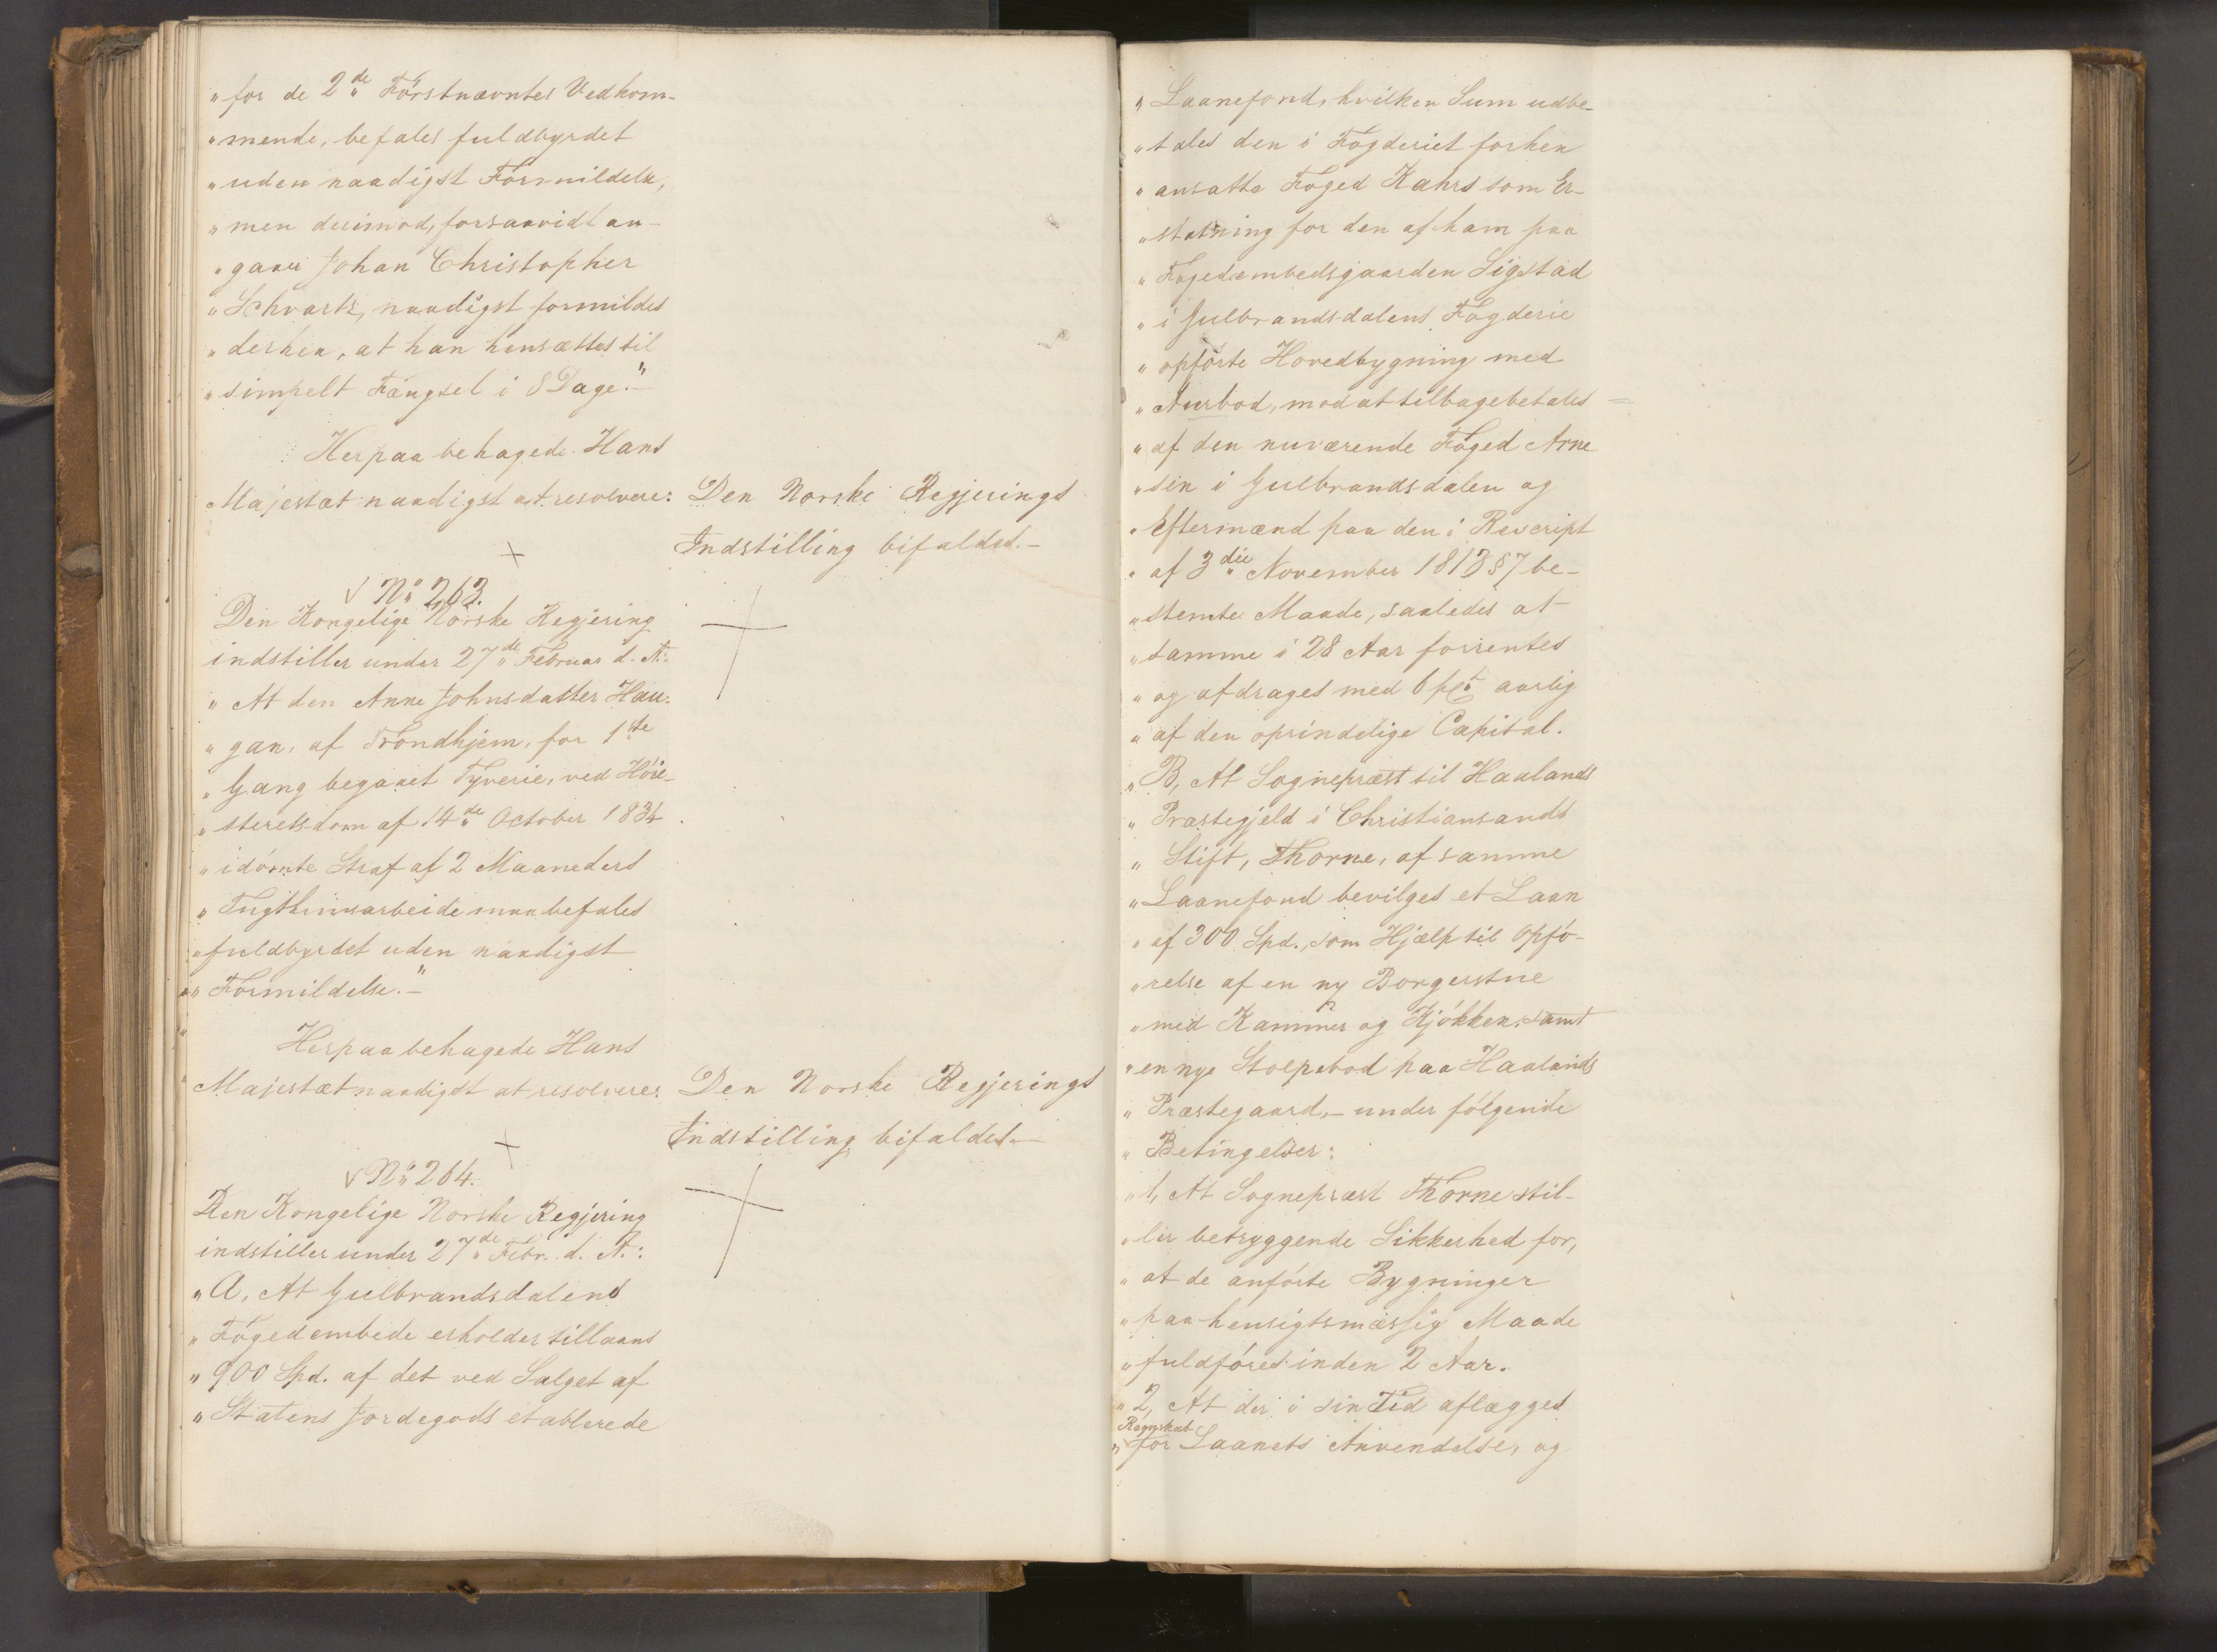 „for de 2de Förstnævntes Vedkom-
„mende, befales fuldbyrdet
„uden naadigst Formildelse,
„men derimod, forsaavidt an-
„gaaer Johan Christopher
„Schvartz, naadigst formildes
„derhen, at han hensættes til
„simpelt Fængsel i 8 Dage."-
Herpaa behagede Hans
Majestæt naadigst at resolvere: Den Norske Regjerings
Indstilling bifaldes.-
No 263.
Den Kongelige Norske Regjering
indstiller under 27de Februar d. A.:
„At den Anne Johnsdatter Hau-
„gan, af Trondhjem, for 1ste
„Gang begaaet Tyverie, ved Höie-
„steretsdom af 14de October 1834
„idömte Straf af 2 Maaneders
„Tugthuusarbeide maa befales
„fuldbyrdet uden naadigst
„Formildelse."-
Herpaa behagede Hans
Majestæt naadigst at resolvere: Den Norske Regjerings
Indstilling bifaldes.-
No 264.
Den Kongelige Norske Regjering
indstiller under 27de Febr. d. A.:
„A, At Gulbrandsdalens
„Fogedembede erholder tillaans
„900 Spd. af det ved Salget af
„Statens Jordegods etablerede
„Laanefond, hvilken Sum udbe-
„tales den i Fogderiet forhen
„ansatte Foged Kahrs som Er-
„statning for den af ham paa
„Fogedembedsgaarden Sigstad
„i Gulbrandsdalens Fogderie
„opförte Hovedbygning med
„ mod at tilbagebetales
„af den nuværende Foged Arne
„sen i Gulbrandsdalen og
„Eftermænd paa den i Rescript
„af 3die November 1813 §7 be-
„stemte Maade, saaledes at
„samme i 28 Aar forrentes
„og afdrages med 6 pCt. aarlig
„af den oprindelige Capital.
„B, At Sognepræst til Haalands
„Præstegjeld i Christiansands
„Stift, Thorne, af samme
„Laanefond bevilges et Laan
„af 300 Spd., som Hjælp til Opfö-
„relse af en ny Borgerstue
„med Kammer og Kjökken, samt
„en nye Stolpebod paa Haalands
„Præstegaard,- under fölgende
„Betingelser:
„1, At Sognepræst Thorne stil-
„ler betryggende Sikkerhed for,
„at de anförte Bygninger
„paa hensigtsmæssig Maade
„fuldföres inden 2 Aar.
„2, At der i sin Tid aflægges
Regnskab
„for Laanets Anvendelse, og